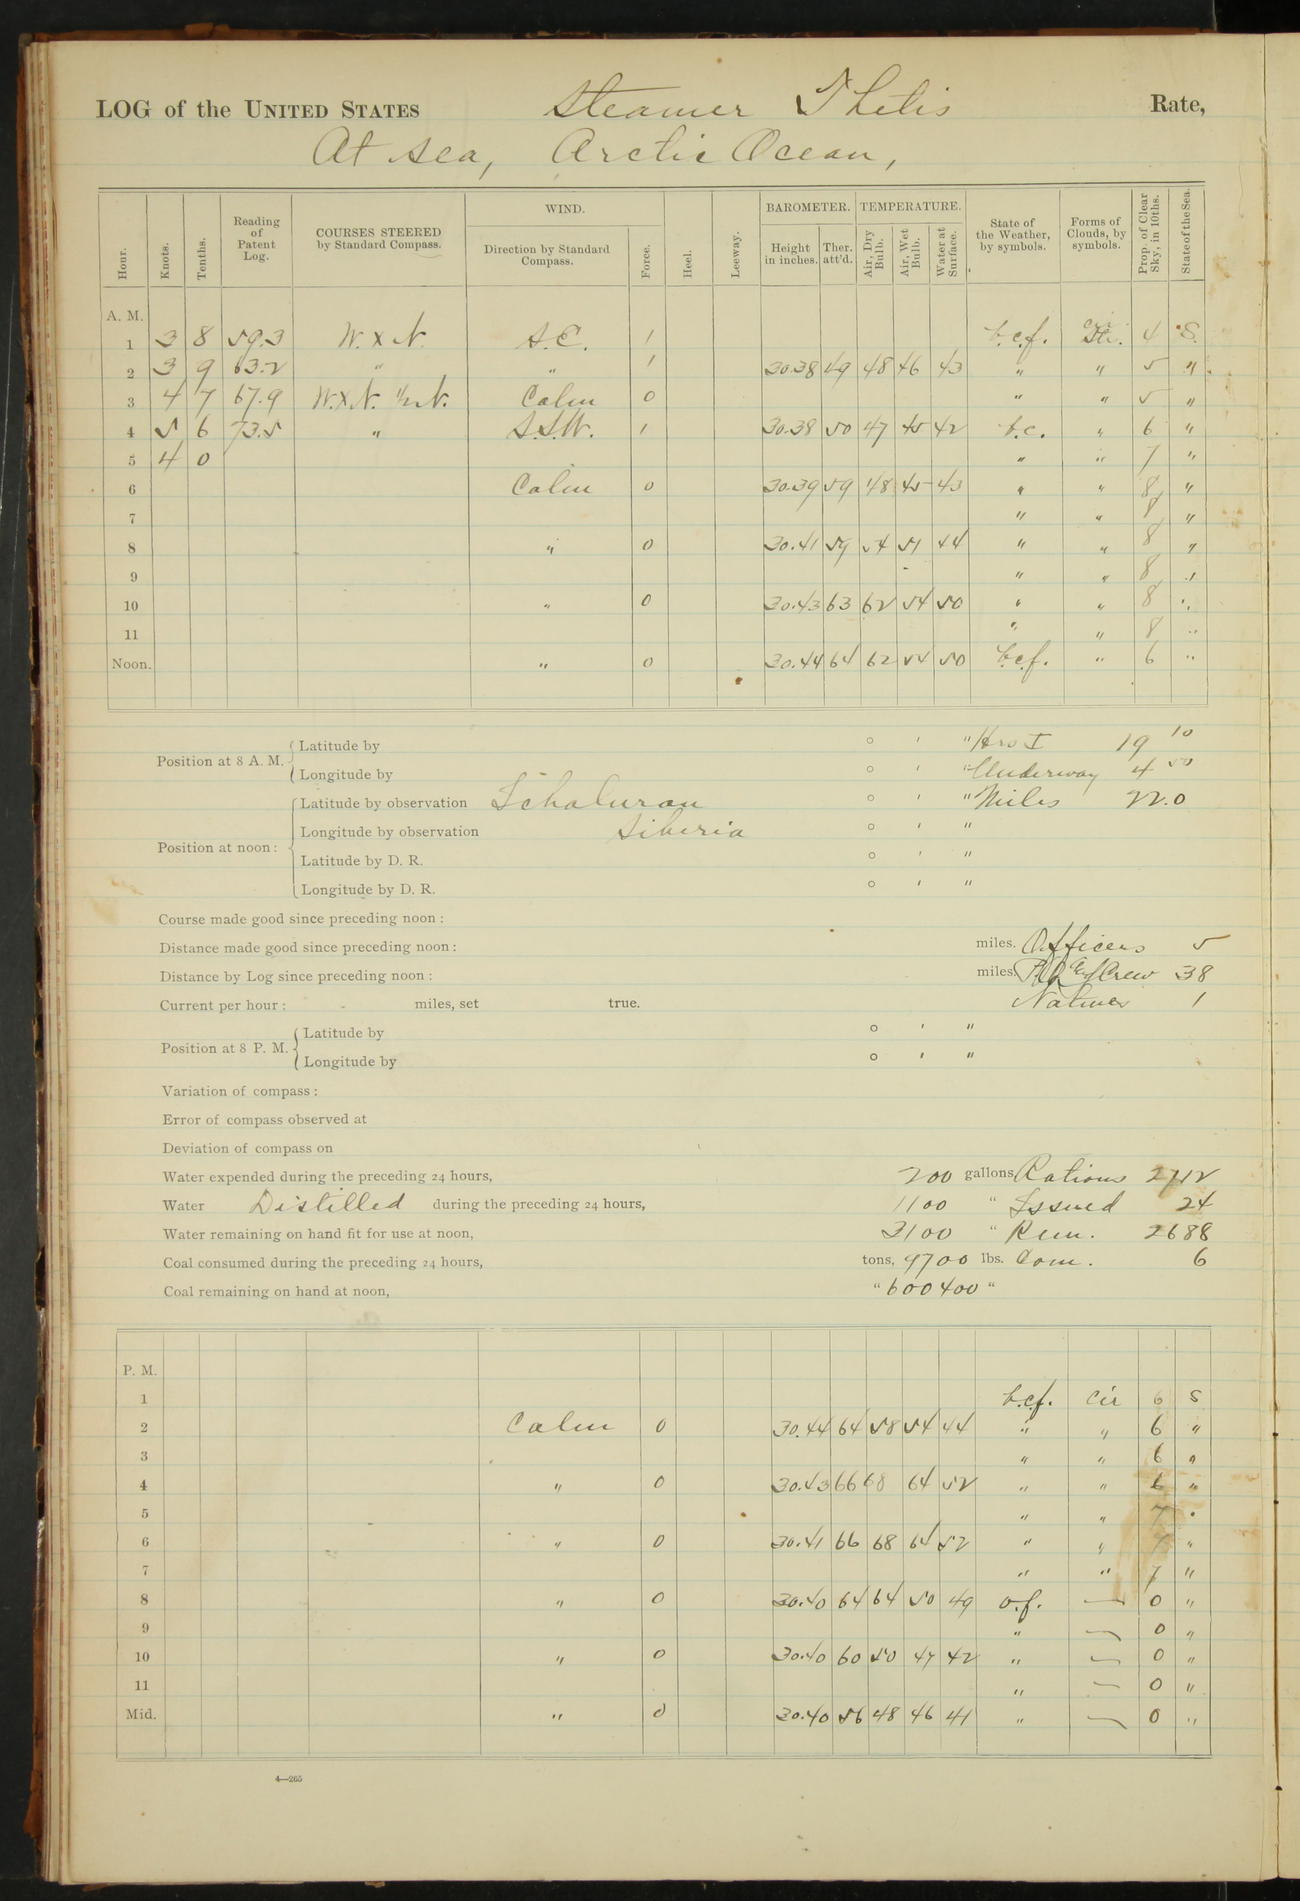 LOG of the UNITED STATES Steamer Thetis Rate,
At sea, Arctic Ocean,
Hour. Knots. Tenths. Reading of Patent Log. COURSES STEERED by Standard Compass. WIND. Direction by Standard Compass. Force. Heel. Leeway. BAROMETER. Height in inches. Ther. att'd. TEMPERATURE. Air, Dry Bulb. Air, Wet Bulb. Water at Surface. State of the Weather, by symbols. Forms of Clouds, by symbols. Prop. of Clear Sky, in 10ths. State of the Sea.
A. M.
1 3 8 59.3 W. x N. S.E. 1 b.c.f. Str. 4 S.
2 3 9 63.2 " " 1 30.38 49 48 46 43 " " 5 "
3 4 7 67.9 W.xN. 1/2 N. Calm 0 " " 5 "
4 5 6 73.5 " S.S.W. 1 30.38 50 47 45 42 b.c. " 6 "
5 4 0 " " 7 "
6 Calm 0 30.39 59 48 45 43 " " 8 "
7 " " 8 "
8 " 0 30.41 59 54 51 44 " " 8 "
9 " " 8 "
10 " 0 30.43 63 62 54 50 " " 8 "
11 " " 8 "
Noon. " 0 30.44 64 62 54 50 b.c.f. " 6 "
Position at 8 A. M. Latitude by ° ' " Hrs I 19 10
Longitude by ° ' " Underway 4 50
Position at noon: Latitude by observation Schaluran ° ' " Miles 22.0
Longitude by observation Siberia ° ' "
Latitude by D. R. ° ' "
Longitude by D. R. ° ' "
Course made good since preceding noon:
Distance made good since preceding noon: miles. Officers 5
Distance by Log since preceding noon: miles Crew 38
Current per hour: miles, set true. Natives 1
Position at 8 P. M. Latitude by ° ' "
Longitude by ° ' "
Variation of compass:
Error of compass observed at
Deviation of compass on
Water expended during the preceding 24 hours, 200 gallons Rations 2712
Water Distilled during the preceding 24 hours, 1100 " Issued 24
Water remaining on hand fit for use at noon, 3100 " Rem. 2688
Coal consumed during the preceding 24 hours, tons, 9700 lbs. Com. 6
Coal remaining on hand at noon, " 600400 "
P. M.
1 b.c.f. Cir 6 S
2 Calm 0 30.44 64 58 54 44 " " 6 "
3 " " 6 "
4 " 0 30.43 66 68 64 52 " " 6 "
5 " " 7 "
6 " 0 30.41 66 68 64 52 " " 7 "
7 " " 7 "
8 " 0 30.40 64 64 50 49 o.f. — 0 "
9 " — 0 "
10 " 0 30.40 60 50 47 42 " — 0 "
11 " — 0 "
Mid. " 0 30.40 56 48 46 41 " — 0 "
4—265